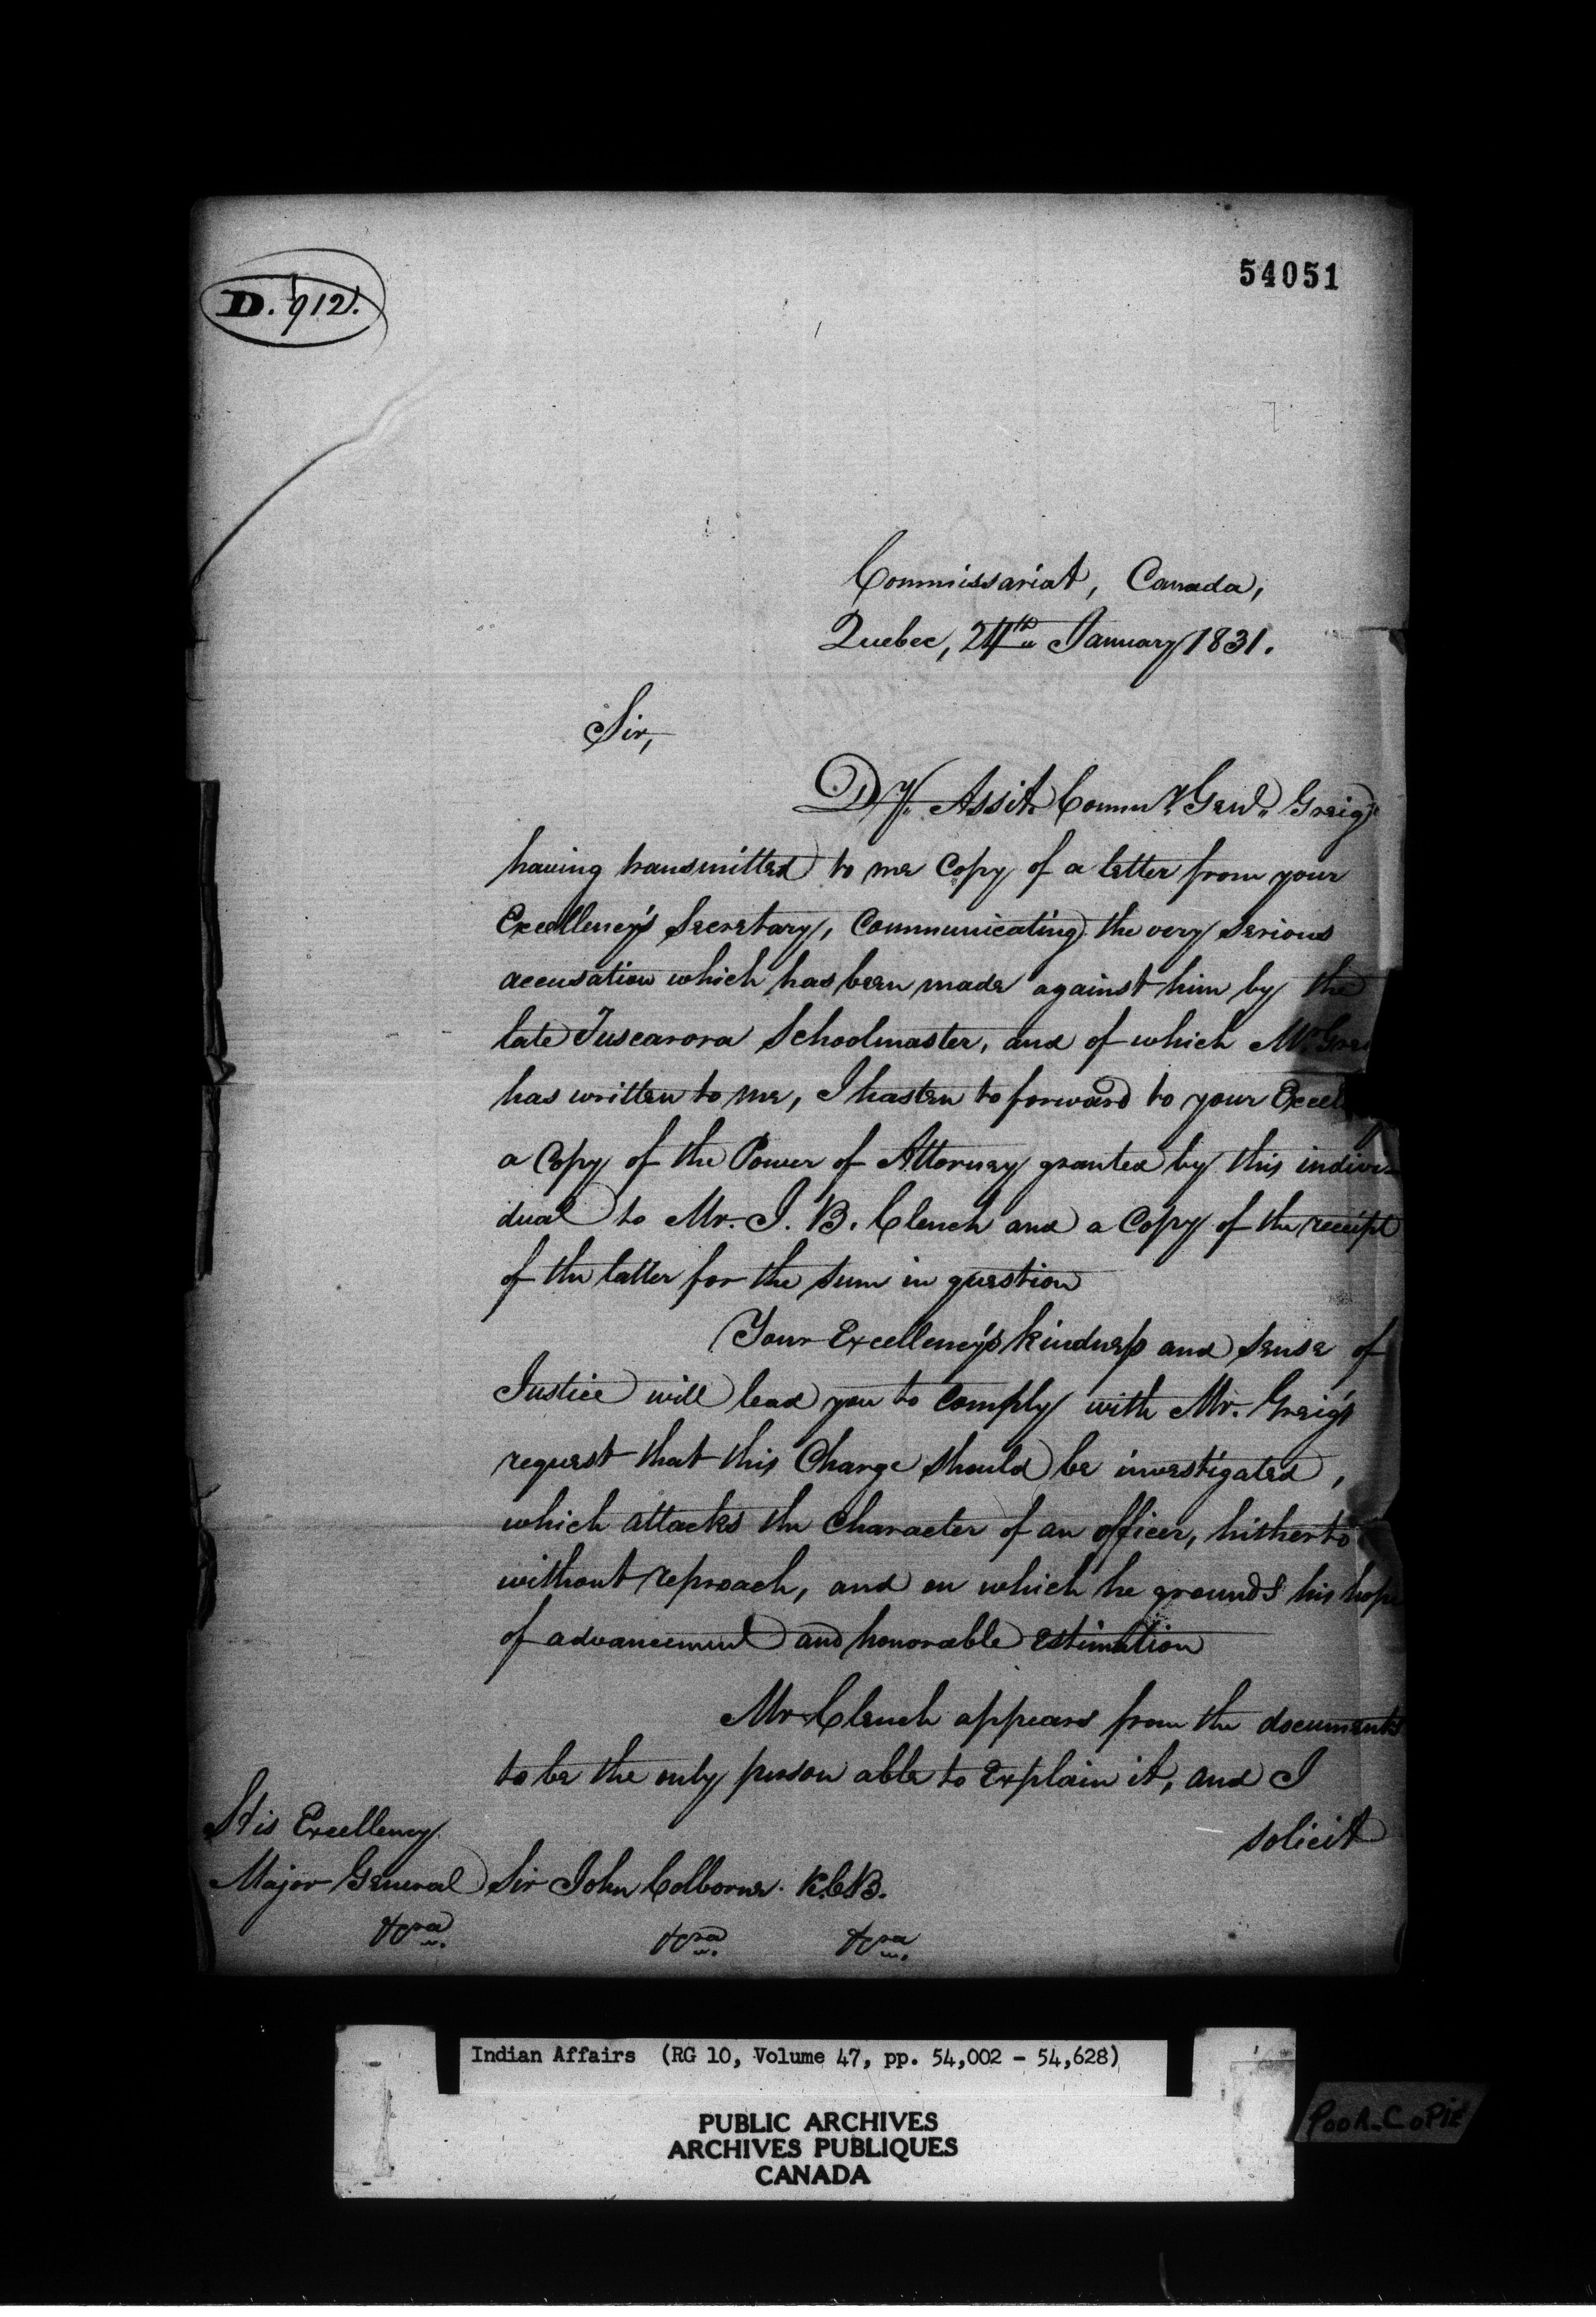 54051
D. 912.
Commissariat, Canada,
Quebec, 24th January 1831.
Sir,
Dy. Assit. Commy. Genl. Greig
having transmitted to me Copy of a letter from your
Excellency's Secretary, Communicating the very serious
accusation which has been made against him by the
late Tuscarora Schoolmaster, and of which Mr. Grei
has written to me, I hasten to forward to your Excel
a Copy of the Power of Attorney granted by this indivi-
dual to Mr. J. B. Clench and a Copy of the receipt
of the latter for the sum in question
Your Excellency's kindness and sense of
Justice will lead you to comply with Mr. Greig's
request that this Charge should be investigated,
which attacks the Character of an officer, hitherto
without reproach, and on which he grounds his hope
of advancement and honorable estimation
Mr Clench appears from the documents
to be the only person able to explain it, and I
solicit
His Excellency
Major General Sir John Colborne K.C.B.
&ca. &ca. &ca.
Indian Affairs (RG 10, Volume 47, pp. 54,002 - 54,628)
PUBLIC ARCHIVES
ARCHIVES PUBLIQUES
CANADA
POOR COPIE